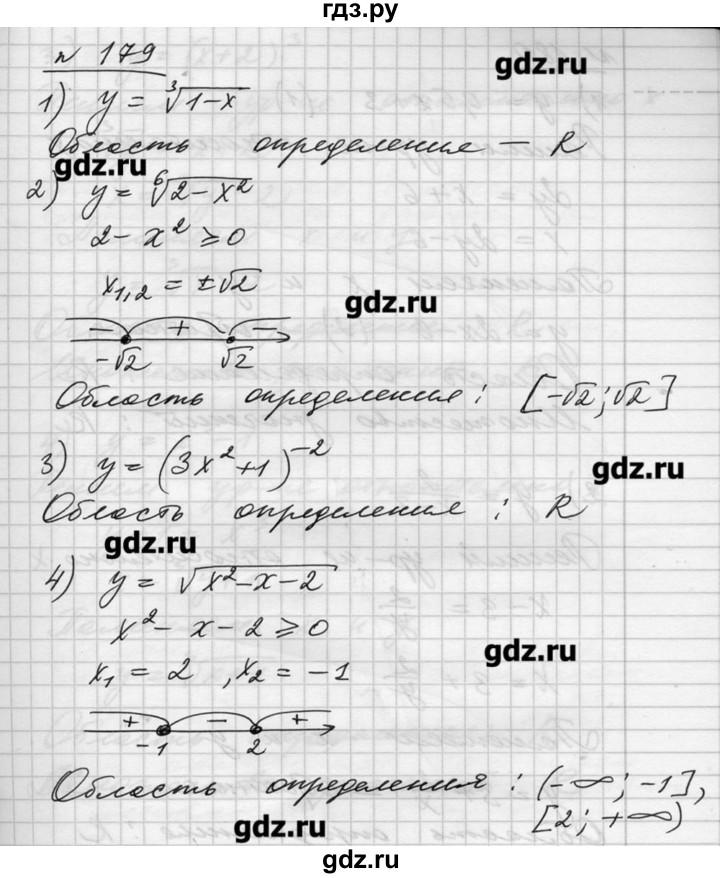 гдз.ру
№ 179
gdz.ru
1) y = ∛(1-x)
Область определения — R
gdz.ru
2) y = ⁶√(2-x²)
2-x² ⩾ 0
x₁,₂ = ±√2
gdz.ru
− + −
-√2 √2
Область определения: [-√2; √2]
3) y = (3x²+1)⁻²
gdz.ru
Область определения: R
gdz.ru
4) y = √(x²-x-2)
x²-x-2 ⩾ 0
gdz.ru
x₁ = 2, x₂ = -1
+ − +
-1 2
Область определения: (-∞; -1],
[2; +∞)
gdz.ru
gdz.ru